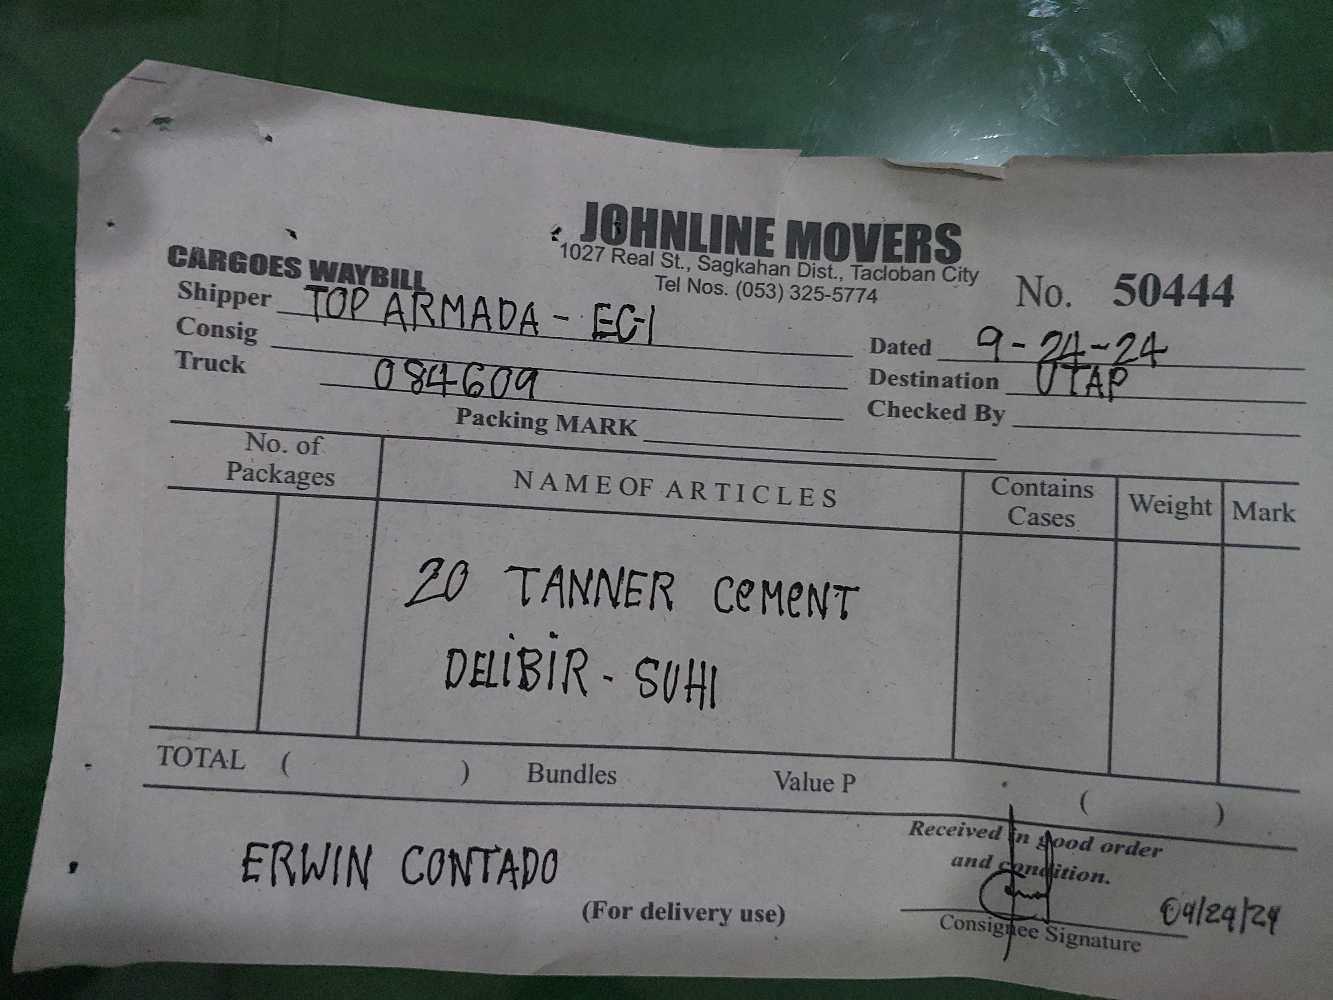 JOHNLINE MOVERS
1027 Real St., Sagkahan Dist., Tacloban City
Tel Nos. (053) 325-5774
CARGOES WAYBILL
No. 50444
Shipper TOP ARMADA - EC-1
Consig
Truck 084609
Dated 9-24-24
Destination UTAP
Checked By
Packing MARK
No. of Packages
NAME OF ARTICLES
Contains Cases
Weight
Mark
20 TANNER CEMENT
DELIBIR - SUHI
TOTAL ( ) Bundles Value P ( )
Received in good order
and condition.
ERWIN CONTADO
(For delivery use)
Consignee Signature
09/24/24